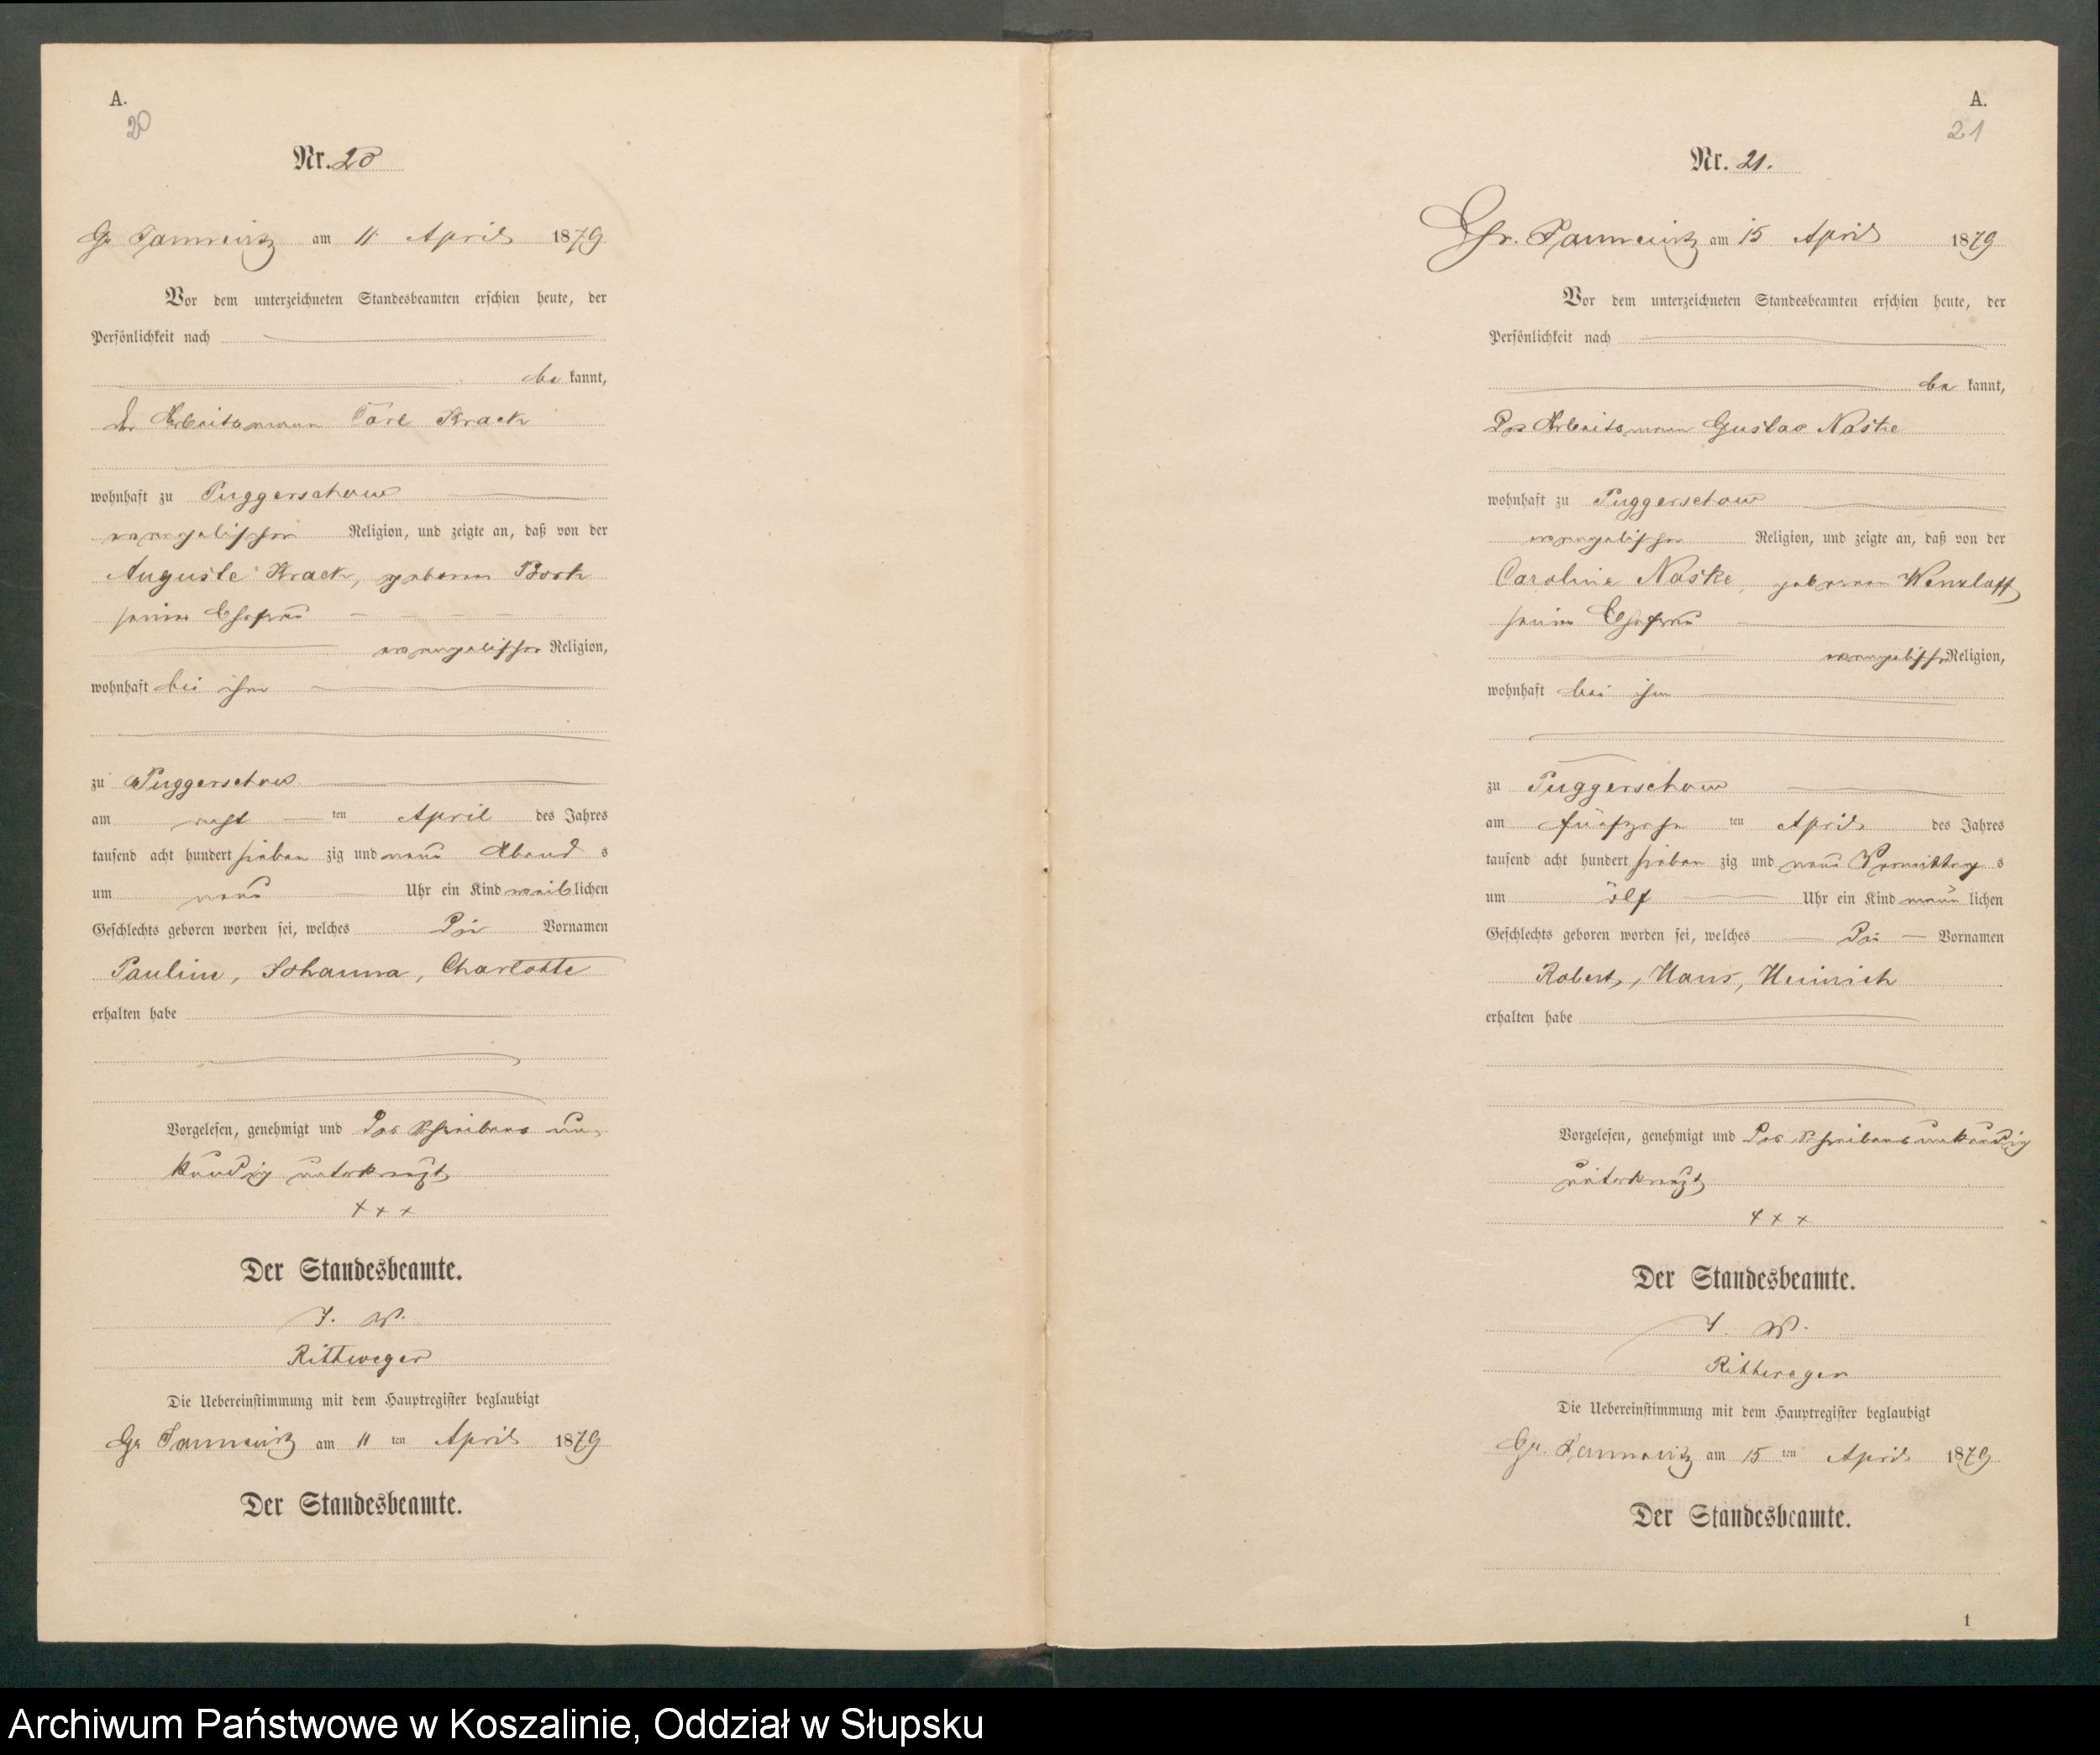 A.
20
Nr. 20
Gr Jannewitz am 11 April 1879
Vor dem unterzeichneten Standesbeamten erschien heute, der
Persönlichkeit nach
be kannt,
der Arbeitsmann Carl Krack
wohnhaft zu Puggerschow
evangelischer Religion, und zeigte an, daß von der
Auguste Krack, geborene Bork
seiner Ehefrau
evangelischer Religion,
wohnhaft bei ihm
zu Puggerschow
am acht ten April des Jahres
tausend acht hundert sieben zig und neun Abend s
um neun Uhr ein Kind weib lichen
Geschlechts geboren worden sei, welches die Vornamen
Pauline, Johanna, Charlotte
erhalten habe
Vorgelesen, genehmigt und des Schreibens un-
kundig unterkreuzt
+ + +
Der Standesbeamte.
J. V.
Rittweger
Die Uebereinstimmung mit dem Hauptregister beglaubigt
Gr Jannewitz am 11 ten April 1879
Der Standesbeamte.
A.
21
Nr. 21.
Gr. Jannewitz am 15 April 1879
Vor dem unterzeichneten Standesbeamten erschien heute, der
Persönlichkeit nach
be kannt,
Der Arbeitsmann Gustav Naske
wohnhaft zu Puggerschow
evangelischer Religion, und zeigte an, daß von der
Caroline Naske, geborene Wenzlaff
seiner Ehefrau
evangelischer Religion,
wohnhaft bei ihm
zu Puggerschow
am fünfzehn ten April des Jahres
tausend acht hundert sieben zig und neun Vormittag s
um ölf Uhr ein Kind männ lichen
Geschlechts geboren worden sei, welches die Vornamen
Robert, Hans, Heinrich
erhalten habe
Vorgelesen, genehmigt und des Schreibens unkundig
unterkreuzt
+ + +
Der Standesbeamte.
J. V.
Rittweger
Die Uebereinstimmung mit dem Hauptregister beglaubigt
Gr. Jannewitz am 15 ten April 1879
Der Standesbeamte.
1
Archiwum Państwowe w Koszalinie, Oddział w Słupsku